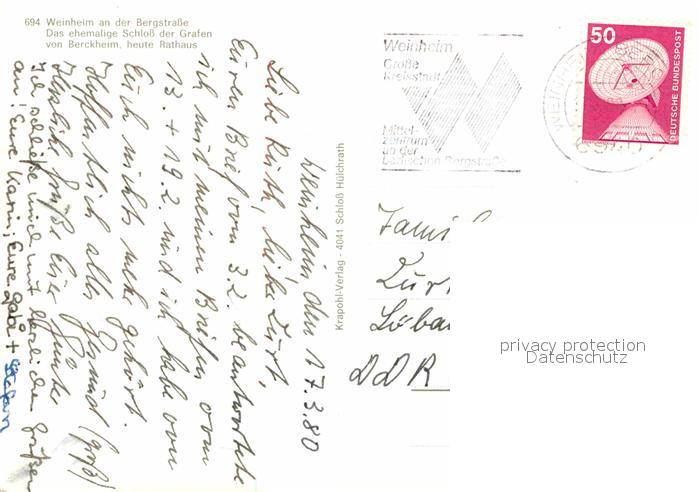 694 Weinheim an der Bergstraße
Das ehemalige Schloß der Grafen
von Berckheim, heute Rathaus
Weinheim, den 17.3.80
Liebe Ruth, lieber Kurt
Euren Brief vom 3.2. beantwortete
ich mit meinen Briefen vom
13. + 19.2. und ich habe von
Euch nichts mehr gehört.
Hoffentlich alles Gesund (groß)
Herzliche Grüße Euer Günter
Ich schließe mich mit herzlichen Grüßen
an! Eure Karin, Eure Gabi +
Stefan
Krapohl-Verlag - 4041 Schloß Hülchrath
Weinheim
Große
Kreisstadt
Mittel-
zentrum
an der
badischen Bergstraße
WEINHEIM
50
DEUTSCHE BUNDESPOST
Fami
Kur
Löba
DDR
privacy protection
Datenschutz